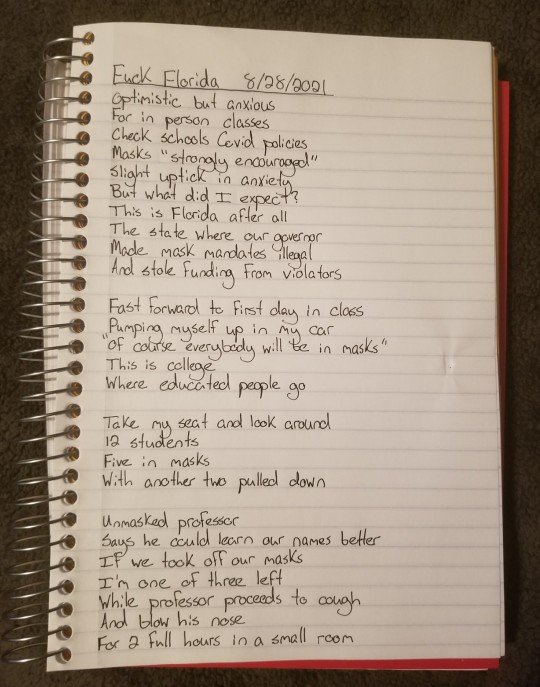 Fuck Florida 8/28/2021
Optimistic but anxious
For in person classes
Check schools Covid policies
Masks "strongly encouraged"
Slight uptick in anxiety
But what did I expect?
This is Florida after all
The state where our governor
Made mask mandates illegal
And stole funding from violators
Fast forward to first day in class
Pumping myself up in my car
"Of course everybody will be in masks"
This is college
Where educated people go
Take my seat and look around
12 students
Five in masks
With another two pulled down
Unmasked professor
Says he could learn our names better
If we took off our masks
I'm one of three left
While professor proceeds to cough
And blow his nose
For 2 full hours in a small room